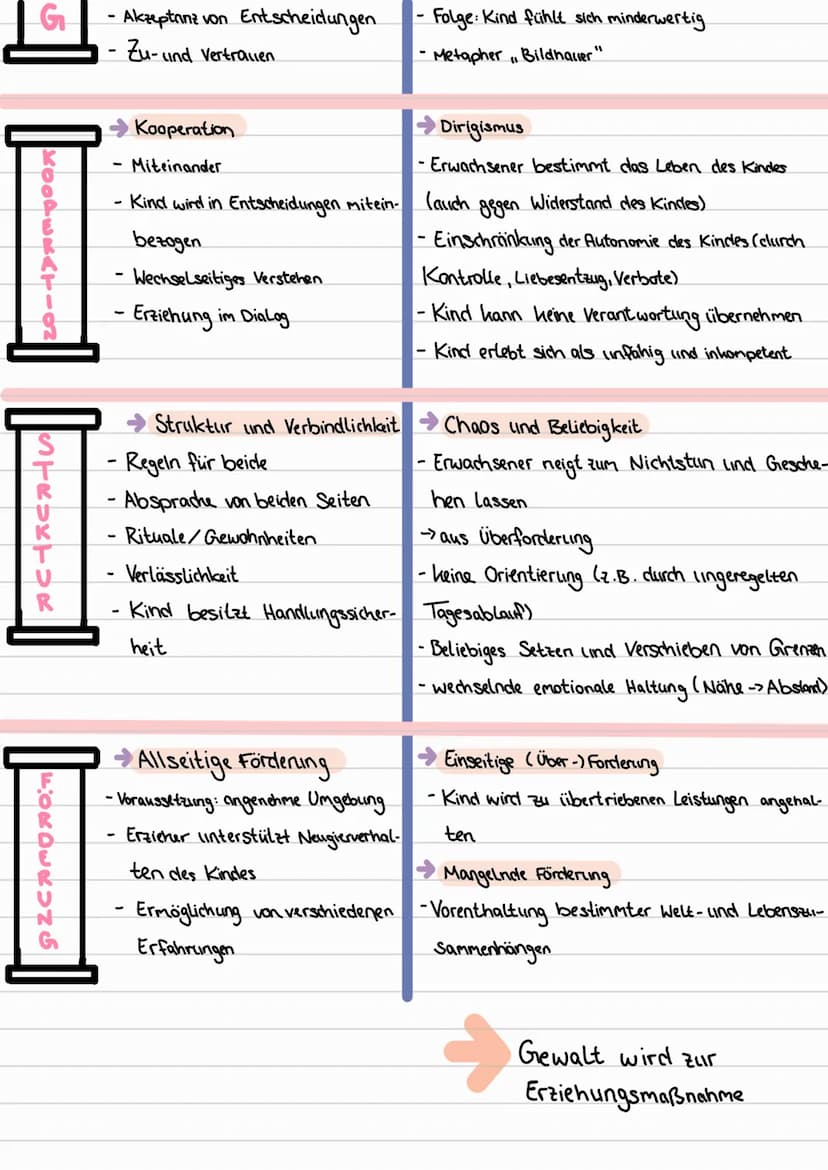 G
- Akzeptanz von Entscheidungen
- Zu- und Vertrauen
- Folge: Kind fühlt sich minderwertig
- Metapher „Bildhauer"
KOOPERATION
→ Kooperation
- Miteinander
- Kind wird in Entscheidungen mitein-
bezogen
- Wechselseitiges Verstehen
- Erziehung im Dialog
→ Dirigismus
- Erwachsener bestimmt das Leben des Kindes
(auch gegen Widerstand des Kindes)
- Einschränkung der Autonomie des Kindes (durch
Kontrolle, Liebesentzug, Verbote)
- Kind kann keine Verantwortung übernehmen
- Kind erlebt sich als unfähig und inkompetent
STRUKTUR
→ Struktur und Verbindlichkeit
- Regeln für beide
- Absprache von beiden Seiten
- Rituale/Gewohnheiten
- Verlässlichkeit
- Kind besitzt Handlungssicher-
heit
→ Chaos und Beliebigkeit
- Erwachsener neigt zum Nichtstun und Gesche-
hen lassen
→ aus Überforderung
- keine Orientierung (z.B. durch ungeregelten
Tagesablauf)
- Beliebiges Setzen und Verschieben von Grenzen
- wechselnde emotionale Haltung (Nähe → Abstand)
FÖRDERUNG
→ Allseitige Förderung
- Voraussetzung: angenehme Umgebung
- Erzieher unterstützt Neugierverhal-
ten des Kindes
- Ermöglichung von verschiedenen
Erfahrungen
→ Einseitige (Über-)Forderung
- Kind wird zu übertriebenen Leistungen angehal-
ten
→ Mangelnde Förderung
- Vorenthaltung bestimmter Welt- und Lebenszu-
sammenhängen
Gewalt wird zur
Erziehungsmaßnahme